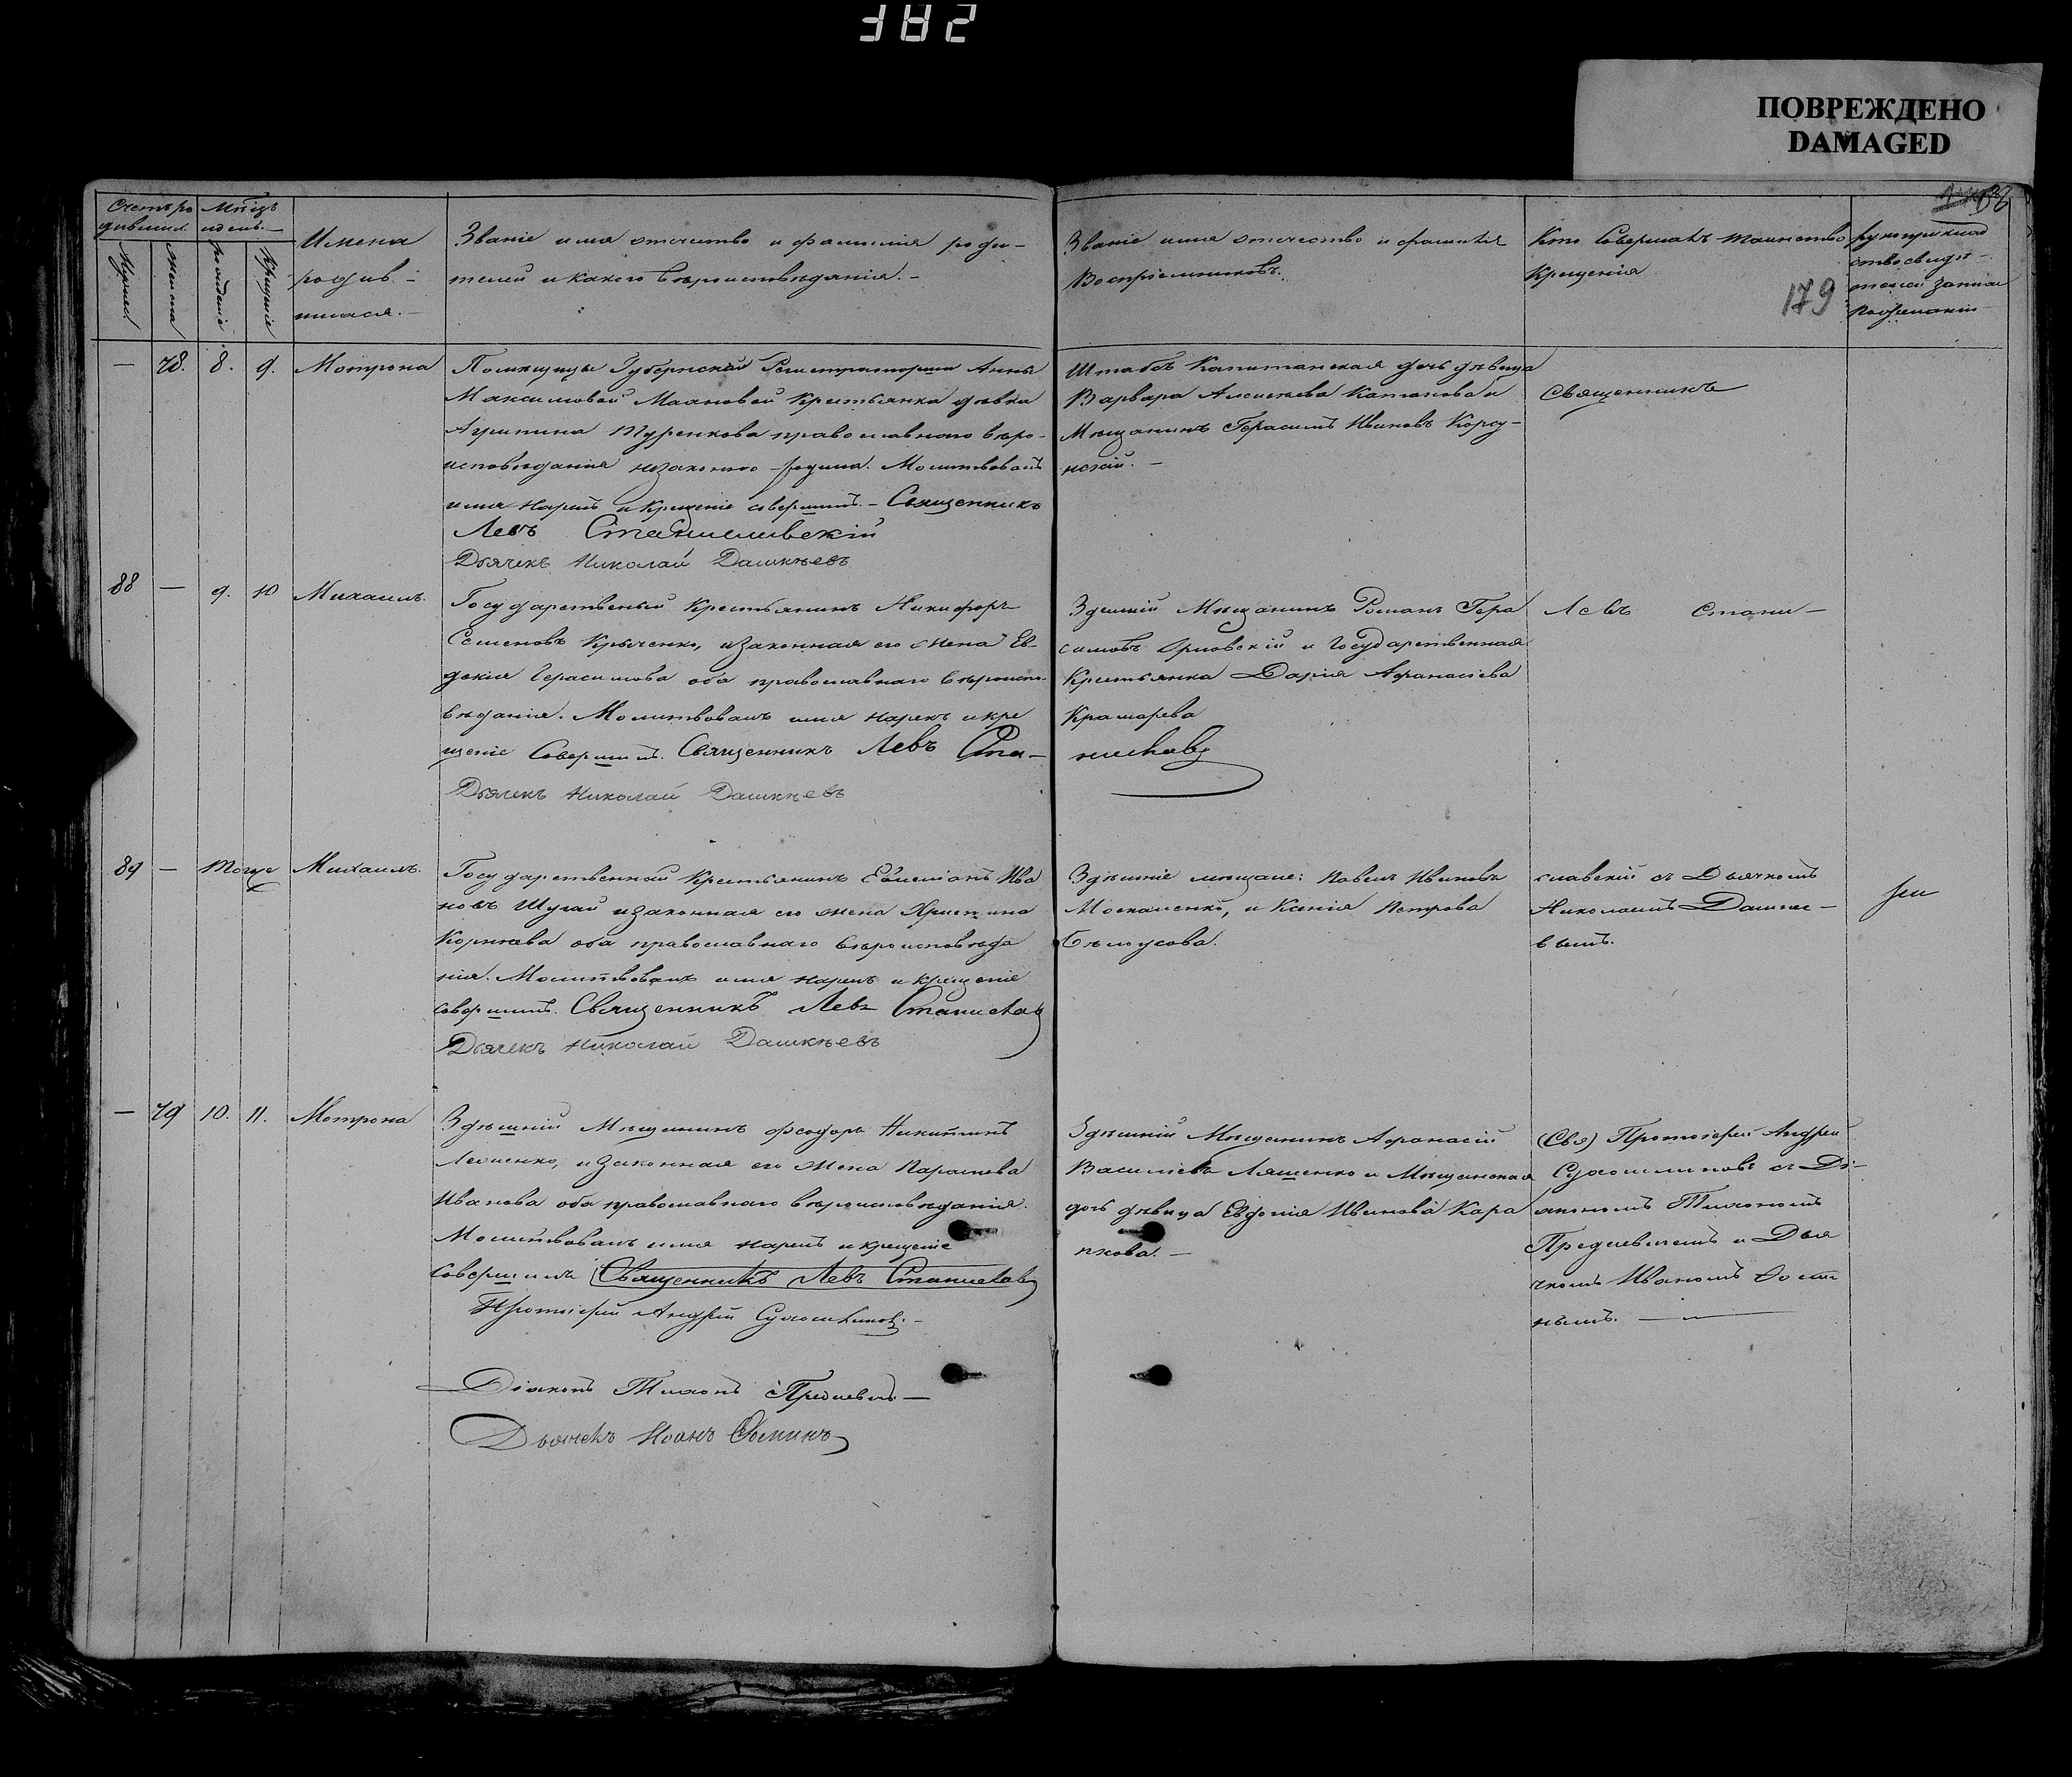 382
ПОВРЕЖДЕНО
DAMAGED
179
Счетъ ро
дившихся
Мѣсяцъ
и день.
Имена
родив-
шихся.
Званіе имя отечество и фамилія роди-
телей и какого вѣроисповѣданія.
Званіе имя отечество и фамилія
Воспріемниковъ.
Кто Совершалъ таинство
Крещенія
рожденіе
Крещеніе
— 78. 8. 9. Мотрона
Помѣщицы Губернской Регистраторши Анны
Максимовой Крестьянка дѣвка
Агрипина Туренкова православнаго вѣро-
исповѣданія незаконно-родила. Молитвовалъ
имя нарекъ и Крещеніе совершилъ. — Священникъ
Левъ Станиславскій
Дьячекъ Николай Дашкѣевъ
Штабсъ Капитанская дочь дѣвица
Варвара Алексѣева и
Мѣщанинъ Герасимъ Ивановъ Корсу-
нскій. —
Священникъ
88 — 9. 10 Михаилъ.
Государственый Крестьянинъ Никифоръ
Семеновъ Крыченко, и Законная его жена Ев-
докія Герасимова оба православнаго вѣроиспо-
вѣданія. Молитвовалъ имя нарекъ и кре
щеніе Совершилъ. Священникъ Левъ Ста-
ниславс
Дьячекъ Николай Дашкѣевъ
Здешній Мѣщанинъ Романъ Гера
симовъ Орловскій и Государственная
Крестьянка Дарія Афанасіева
Крамарева
Левъ Стани—
89 — Тогоже Михаилъ.
Государственной Крестьянинъ Евменій Ива
новъ Шугай и законная его жена Христина
Корнѣева оба православнаго вѣроисповѣда
нія. Молитвовалъ имя нарекъ и крещеніе
совершилъ. Священникъ Левъ Станиславс
Дьячекъ Николай Дашкѣевъ
Здѣшніе мѣщане: Павелъ Ивановъ
Москаленко, и Ксенія Петрова
Бѣлоусова.
славскій съ Дьячкомъ
Николаемъ Дашкѣе—
вымъ.
— 79 10. 11. Мотрона
Здѣшній Мѣщанинъ Феодоръ Никитинъ
и Законная его жена Параскева
Иванова оба православнаго вѣроисповѣданія.
Молитвовалъ имя нарекъ и крещеніе
Совершилъ Священникъ Левъ Станиславс
Протоіерей Андрей
Діаконъ Тихонъ
Дьячекъ Иоанъ Фоминъ
Здѣшній Мѣщанинъ Афанасій
Василіевъ Ляшенко и Мѣщанская
дочь дѣвица Евдокія Иванова Кара
пкова. —
(Свя) Протоіерей Андрей
съ Ді-
акономъ Тихономъ
и Дья
чкомъ Иваномъ Фоми
нымъ. —